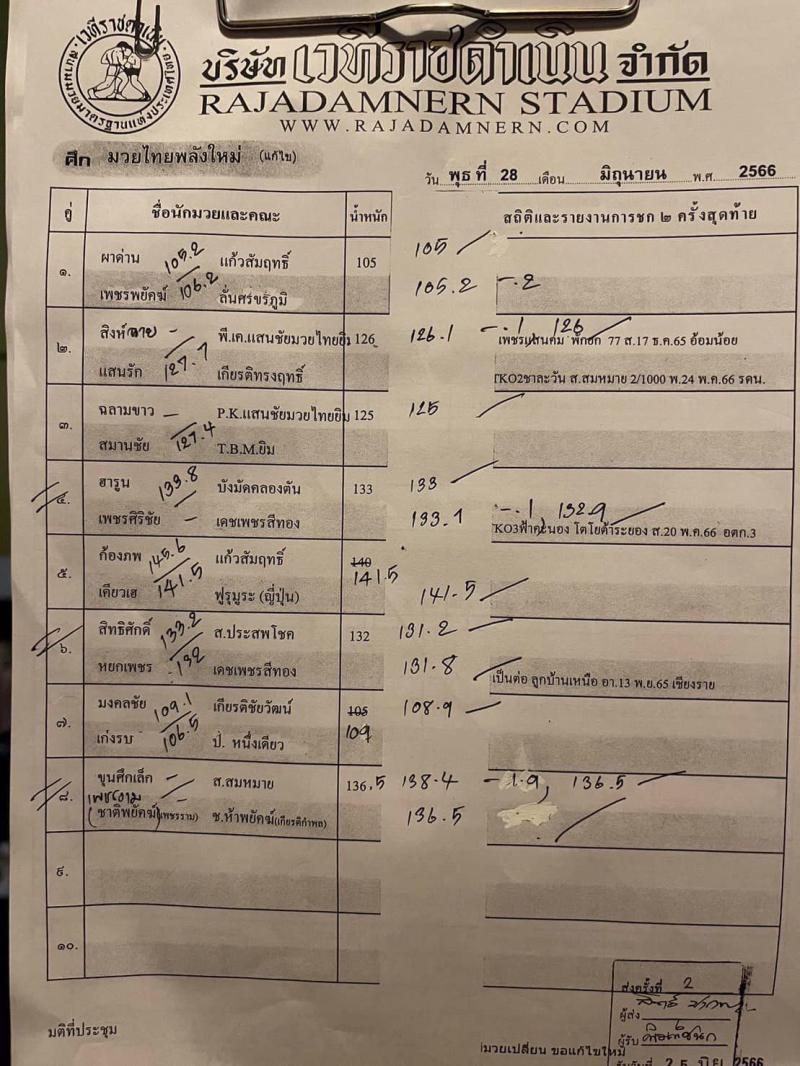 เวทีราชดำเนิน
สนามมวยมาตรฐานแห่งประเทศไทย
บริษัท เวทีราชดำเนิน จำกัด
RAJADAMNERN STADIUM
WWW.RAJADAMNERN.COM
ศึก มวยไทยพลังใหม่ (แก้ไข)
วัน พุธ ที่ 28 เดือน มิถุนายน พ.ศ 2566
คู่ ชื่อนักมวยและคณะ น้ำหนัก สถิติและรายงานการชก ๒ ครั้งสุดท้าย
๑. ผาด่าน 105.2 แก้วสัมฤทธิ์ 105 105
เพชรพยัคฆ์ 106.2 ลั่นศรขรภูมิ 105.2 -.2
๒. สิงห์ลาย - พี.เค.แสนชัยมวยไทยยิม 126 126.1 -.1 126
77 ส.17 ธ.ค.65 อ้อมน้อย
แสนรัก 127.7 เกียรติทรงฤทธิ์
TKO2ชาละวัน ส.สมหมาย 2/1000 พ.24 พ.ค.66 รดน.
๓. ฉลามขาว - P.K.แสนชัยมวยไทยยิม 125 125
สมานชัย 127.4 T.B.M.ยิม
๔. ฮารูน 139.8 บังมัดคลองตัน 133 133
เพชรศิริชัย - เดชเพชรสีทอง 133.1 -.1, 132.9
โตโยต้าระยอง ส.20 พ.ค.66 อตก.3
๕. ก้องภพ 145.6 แก้วสัมฤทธิ์ 140
เคียวเฮ 141.5 ฟูรุมูระ (ญี่ปุ่น) 141.5 141.5
๖. สิทธิศักดิ์ 133.2 ส.ประสพโชค 132 131.2
หยกเพชร 132 เดชเพชรสีทอง 131.8
เป็นต่อ ลูกบ้านเหนือ อา.13 พ.ย.65 เชียงราย
๗. มงคลชัย 109.1 เกียรติชัยวัฒน์ 105 108.9
เก่งรบ 106.5 ป. หนึ่งเดียว 109
๘. ขุนศึกเล็ก - ส.สมหมาย 136.5 138.4 -1.9, 136.5
เพชรงาม
(ชาติพยัคฆ์) (เพชรราม) ช.ห้าพยัคฆ์(เกียรติกำพล) 136.5
๙.
๑๐.
มติที่ประชุม
ส่งครั้งที่ 2
ผู้ส่ง
ผู้รับ
มวยเปลี่ยน ขอแก้ไขใหม่
25 มิย 2566